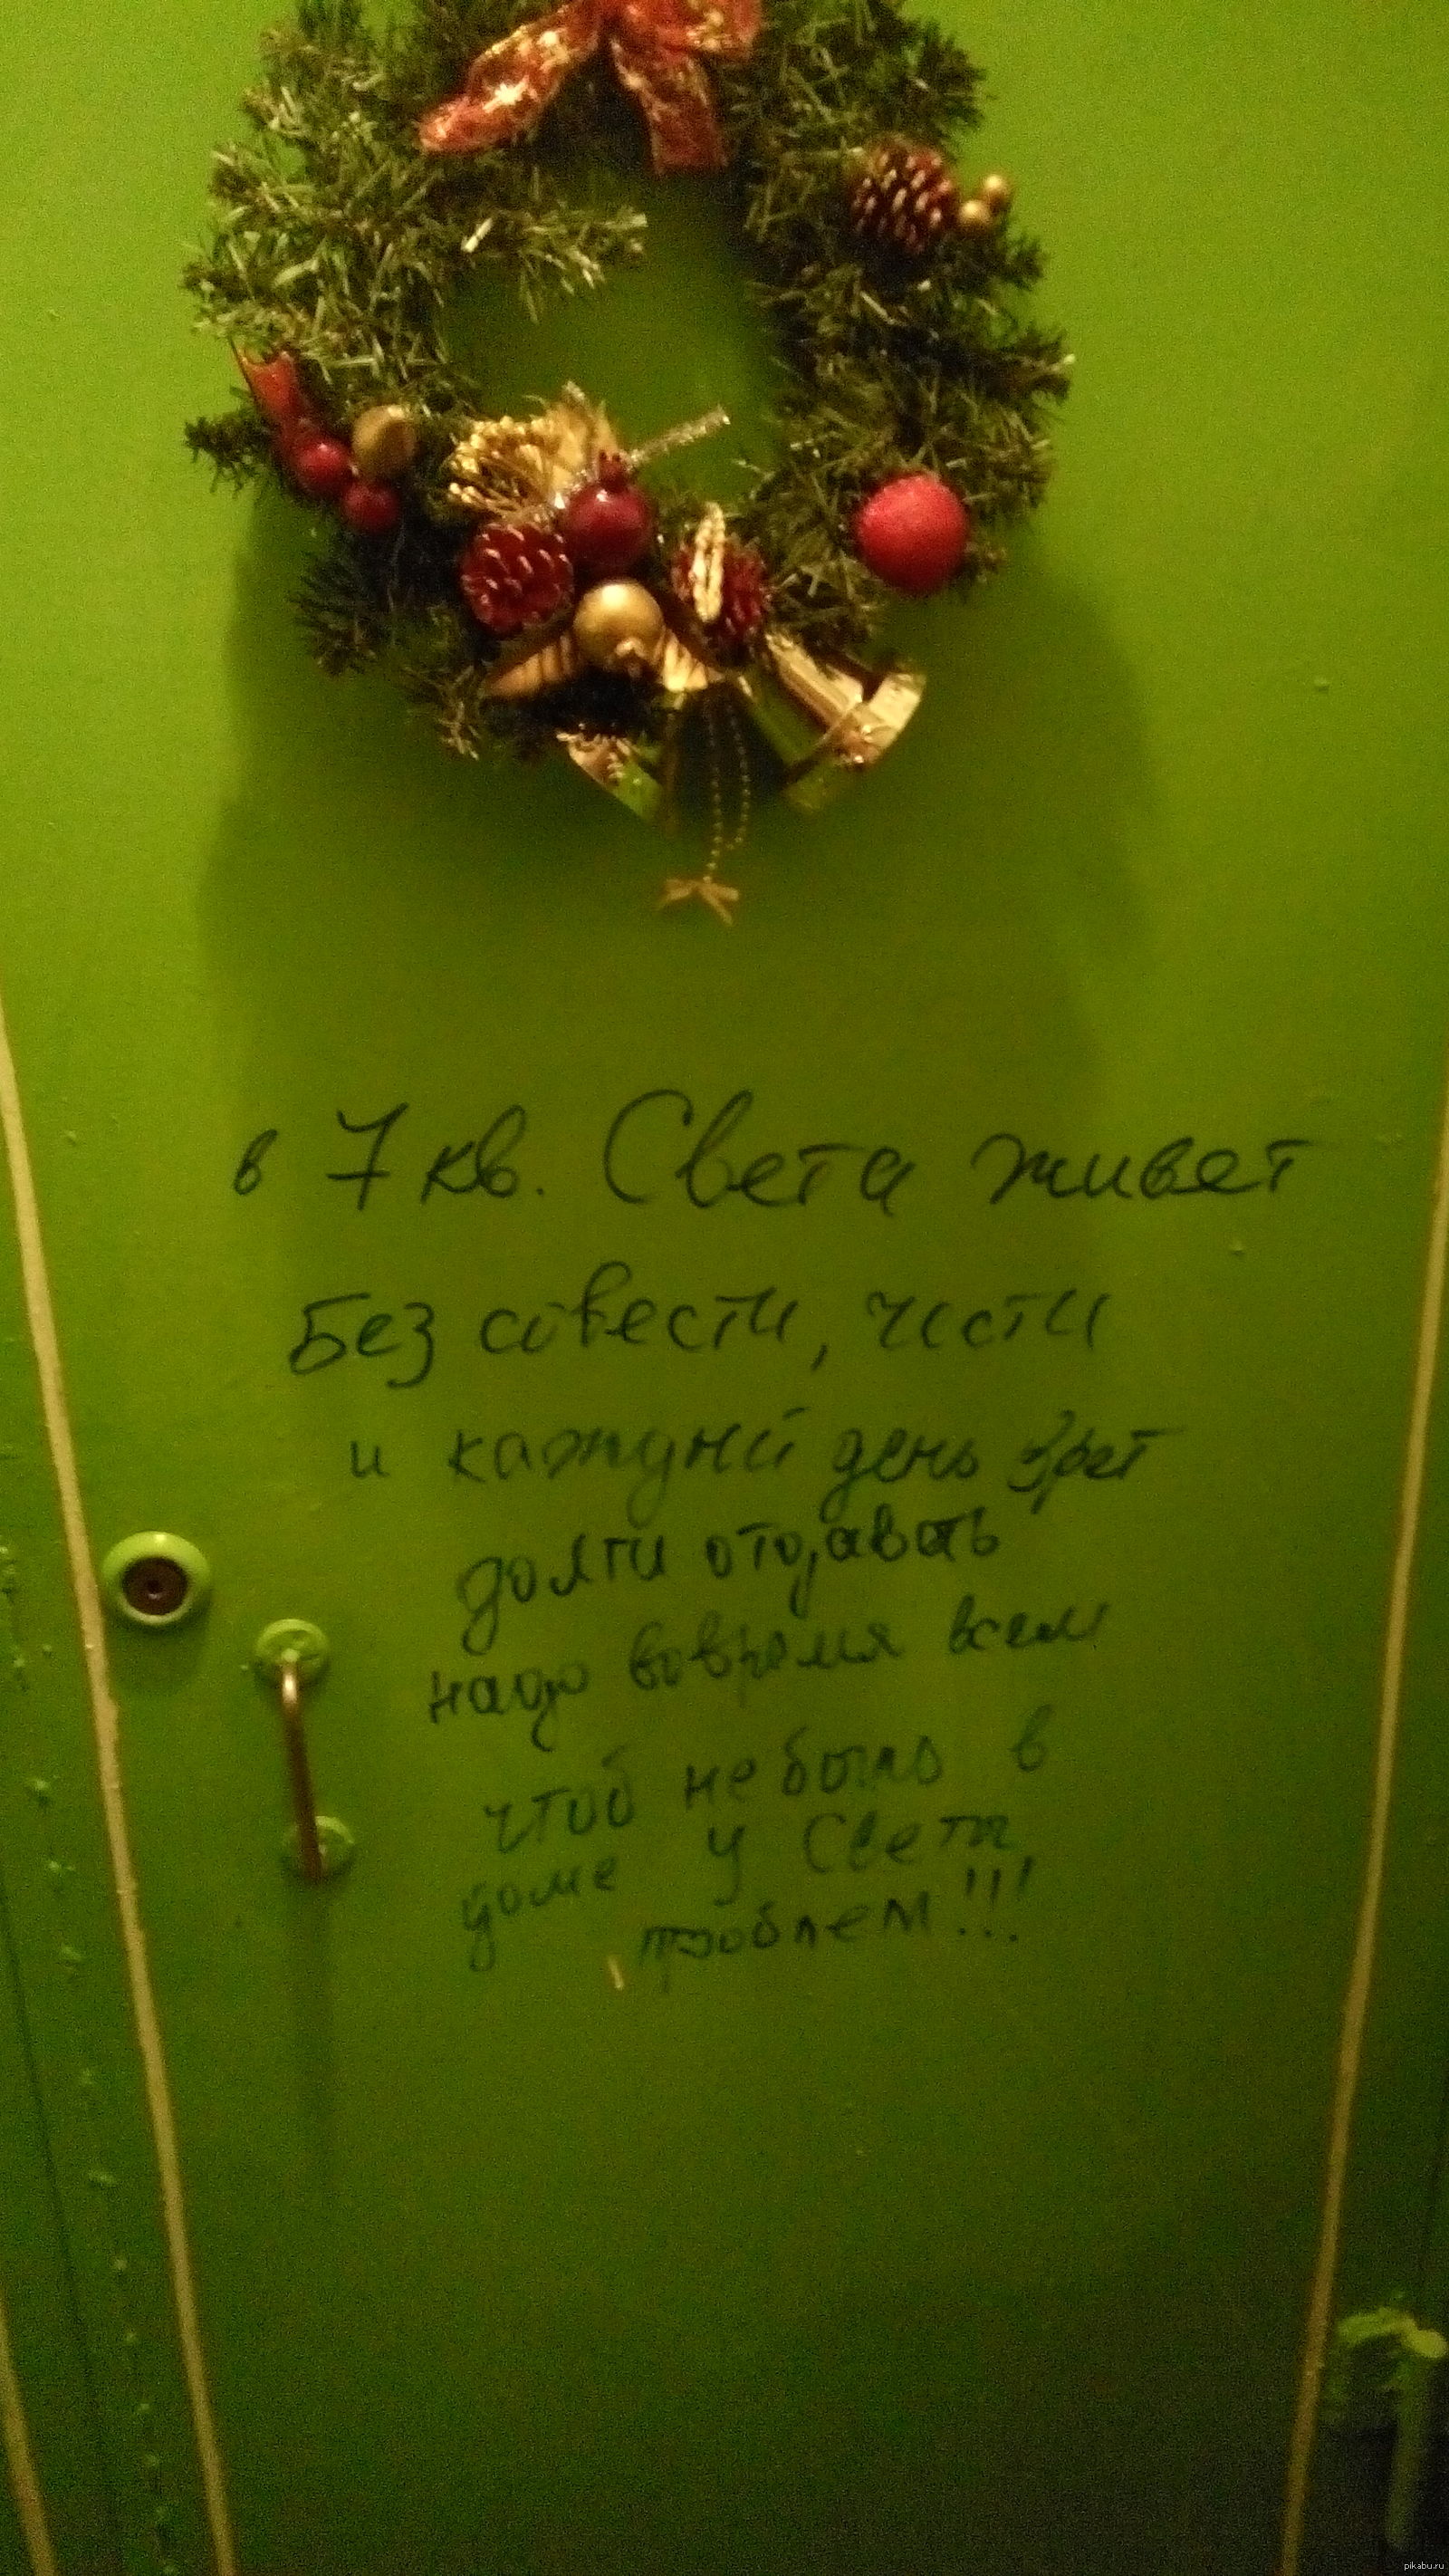 в 7 кв. Света живет
Без совести, чести
и каждый день врет
долги отдавать
надо вовремя всем
чтоб не было в
доме у Светы
проблем!!!
pikabu.ru